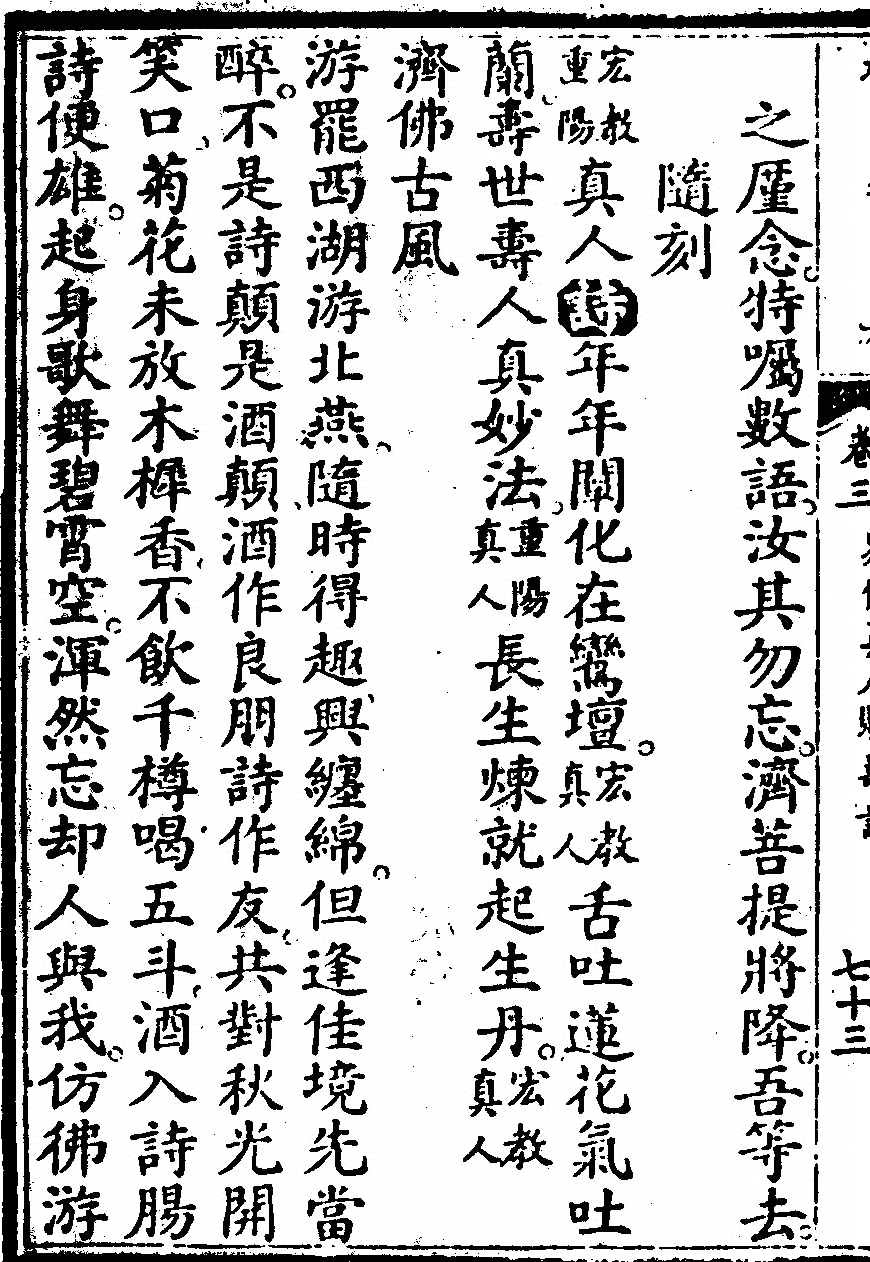 之廑念。特囑數語。汝其勿忘。濟菩提將降。吾等去。
隨刻
宏教重陽真人詩年年闡化在鸞壇。宏教真人舌吐蓮花氣吐
蘭、壽世壽人真妙法。重陽真人長生煉就起生丹。宏教真人
濟佛古風
游罷西湖游北燕。隨時得趣興纏綿。但逢佳境先當
醉。不是詩顛是酒顛、酒作良朋詩作友、共對秋光開
笑口、菊花未放木樨香、不飲千樽喝五斗、酒入詩腸
詩便雄。起身歌舞碧霄空。渾然忘却人與我。仿彿游
卷三
七十三